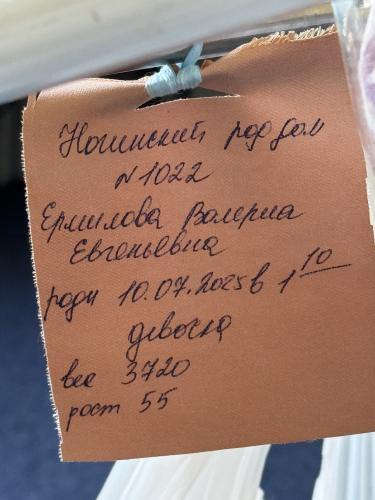 Ногинский роддом
N 1022
Ермилова Валерия
Евгеньевна
роди 10.07.2025 в 1 10
девочка
вес 3720
рост 55